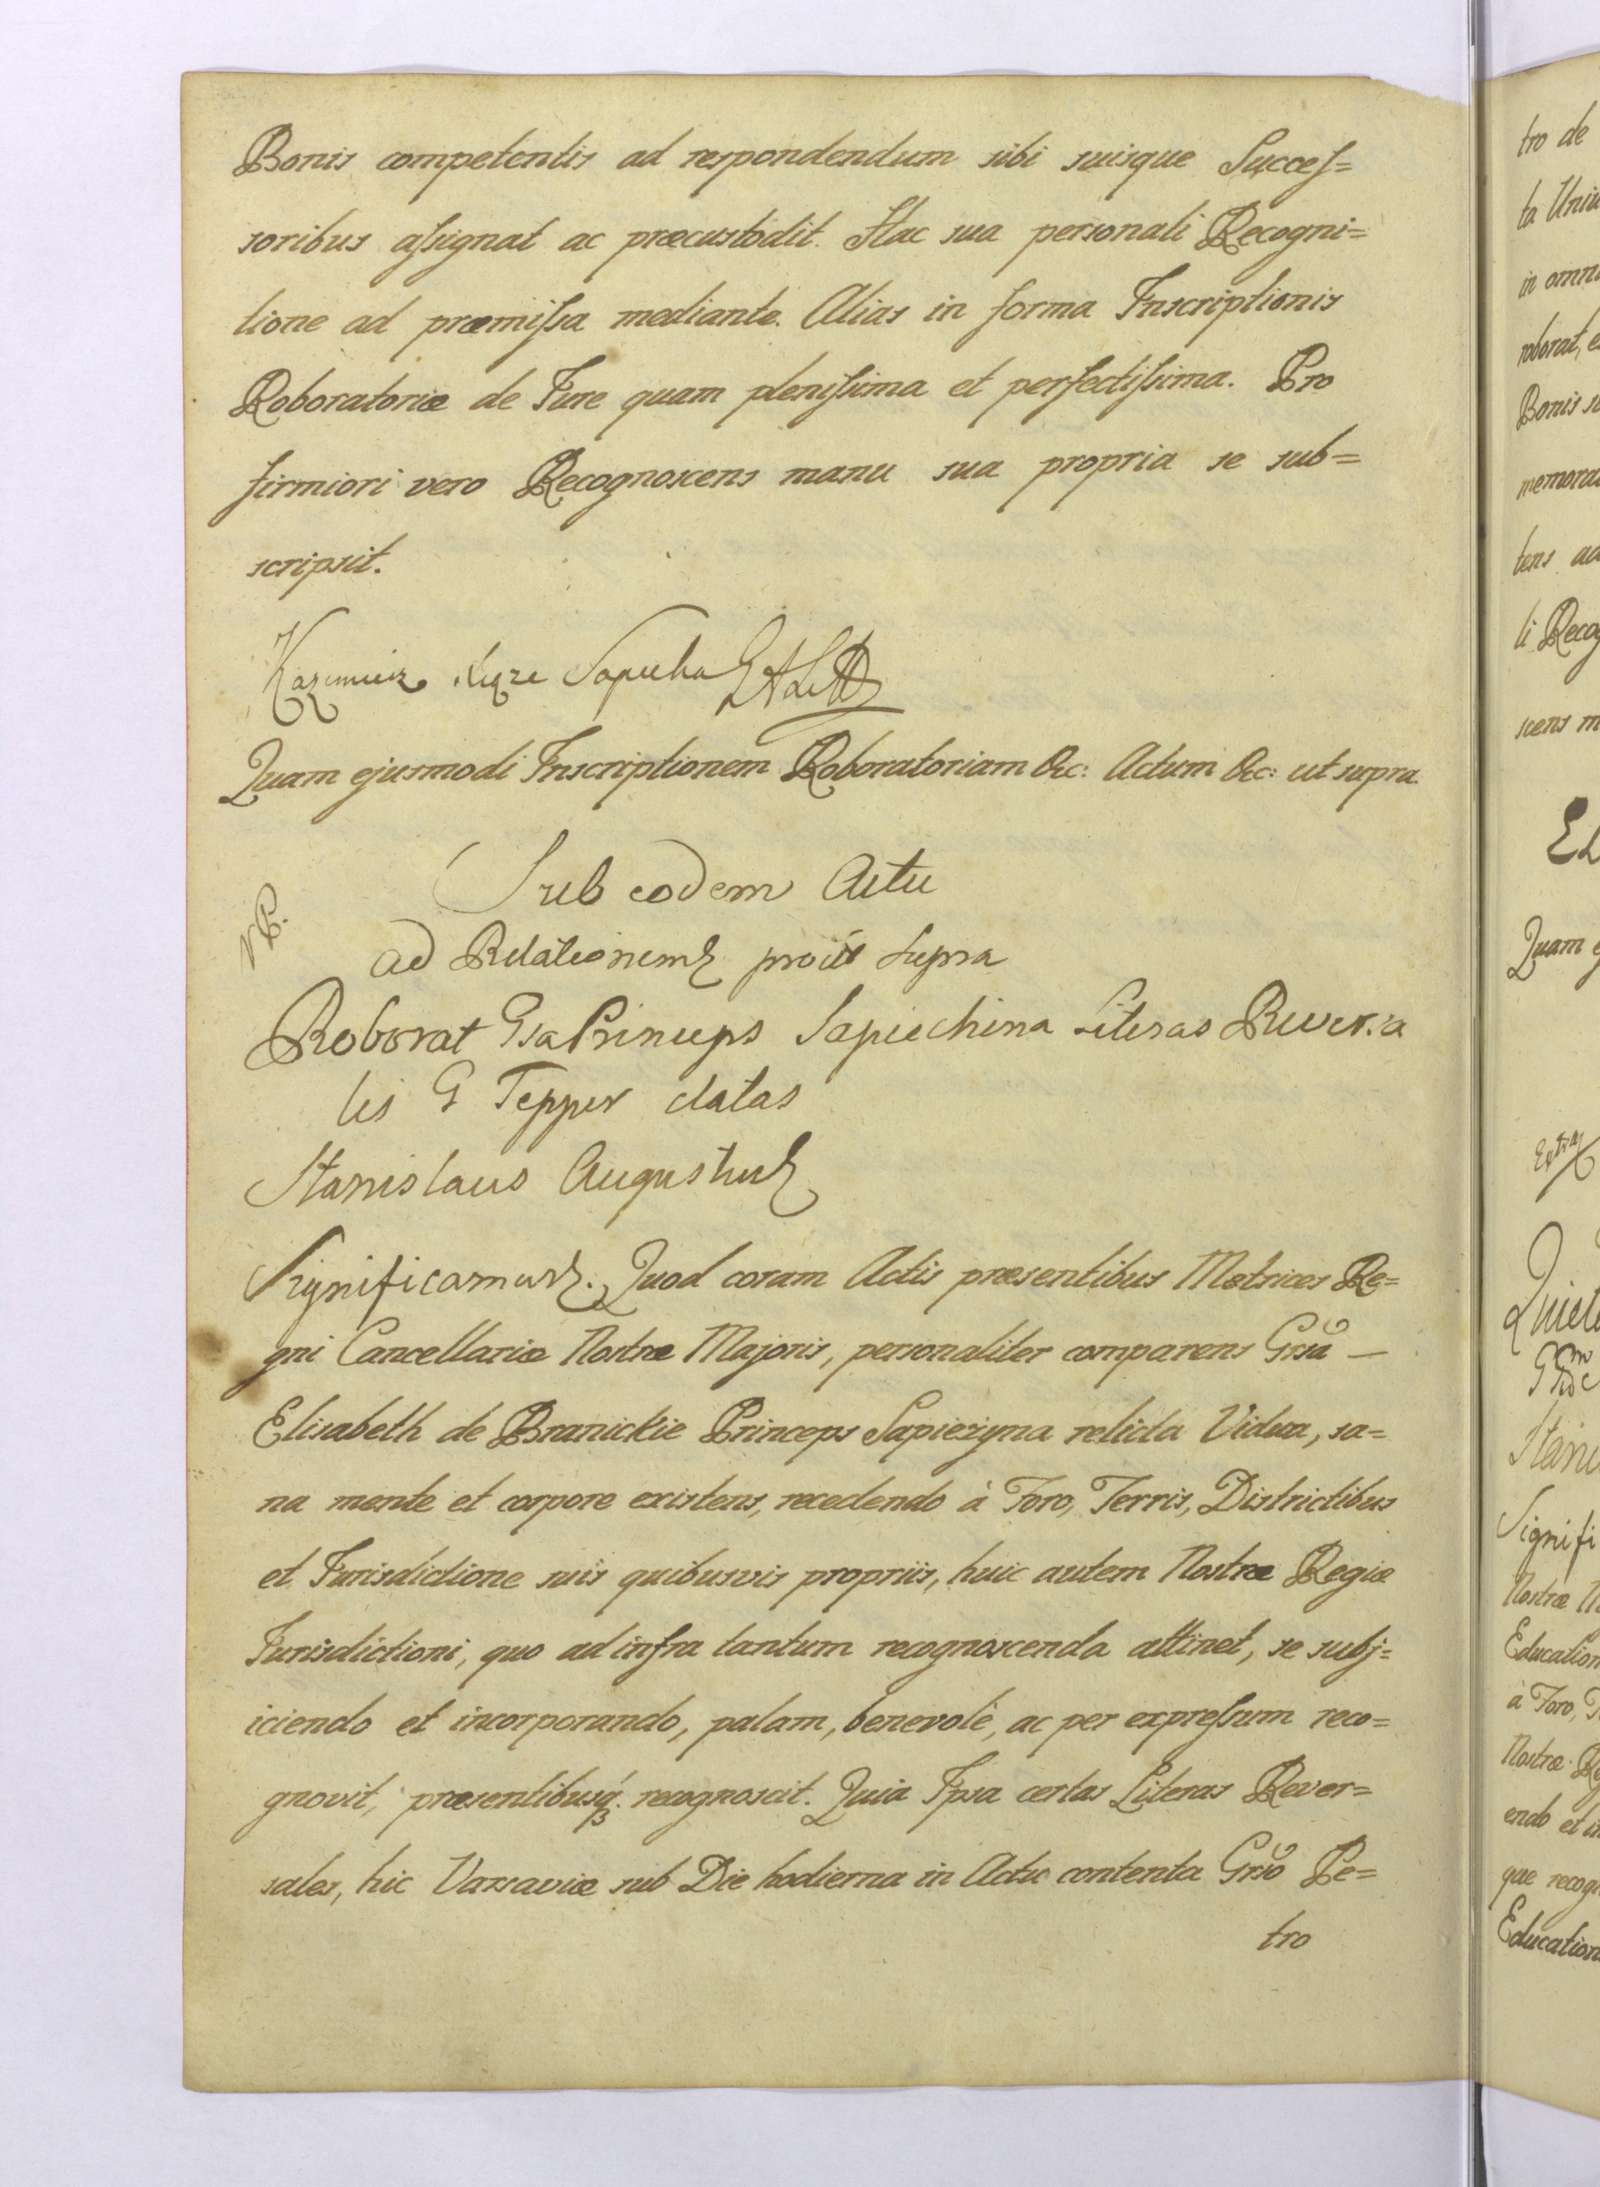 Bonis competentis ad respondendum sibi suisque Succeſ=
soribus aſsignat ac præcustodit. Hac sua personali Recogni=
tione ad præmiſsa mediante. Alias in forma Inscriptionis
Roboratoriæ de Jure quam pleniſsima et perfectiſsima. Pro
firmiori vero Recognoscens manu sua propria se sub=
scripsit.
Kazimierz Sapieha
Quam ejusmodi Inscriptionem Roboratoriam &c: Actum &c: ut supra
Sub eodem Actu
ad Relationem prout supra
Roborat Gsa Princeps Sapiechina Literas Reversa
les G Tepper datas
Stanislaus Augustus
Significamus. Quod coram Actis præsentibus Metrices Re=
gni Cancellariæ Nostræ Majoris, personaliter comparens Grsa —
Elisabeth de Branickie Princeps Sapieżyna relicta Vidua, sa=
na mente et corpore existens, recedendo à Foro, Terris, Districtibus
et Jurisdictione suis quibusvis propriis, huic autem Nostræ Regiæ
Jurisdictioni, quo ad infra tantum recognoscenda attinet, se subj=
iciendo et incorporando, palam, benevolè, ac per expreſsum reco=
gnovit, præsentibusq. recognoscit. Quia Ipsa certas Literas Rever=
sales, hic Varsaviæ sub Die hodierna in Actu contenta Grso Pe=
tro
tro de
in omni
roborat, e
Bonis su
memora
tens ad
li Recog
scens m
Quam e
Stani
Signifi
Nostræ
Education
à Foro, T
Nostræ Re
endo et in
que recogn
Education